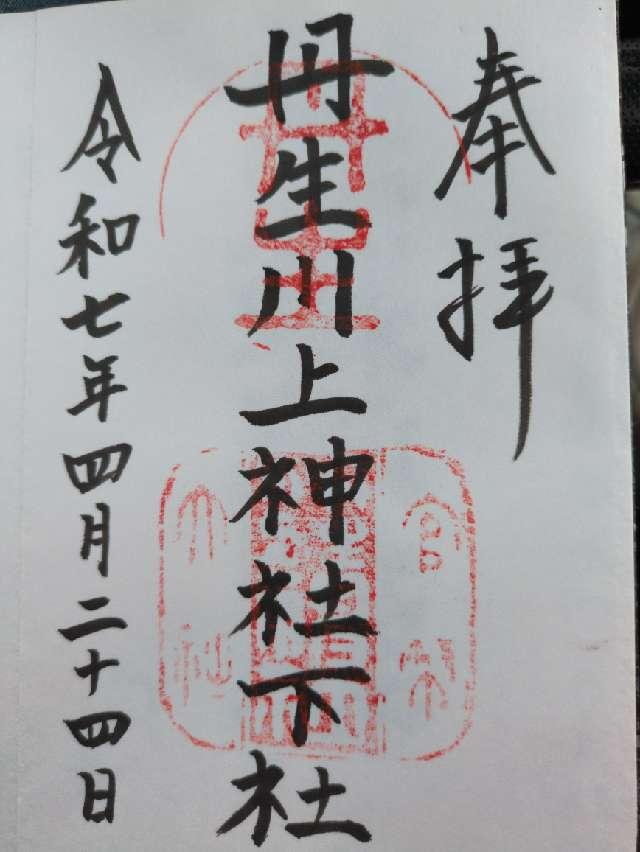 奉拝
丹生川上神社下社
令和七年四月二十四日
官幣
大社